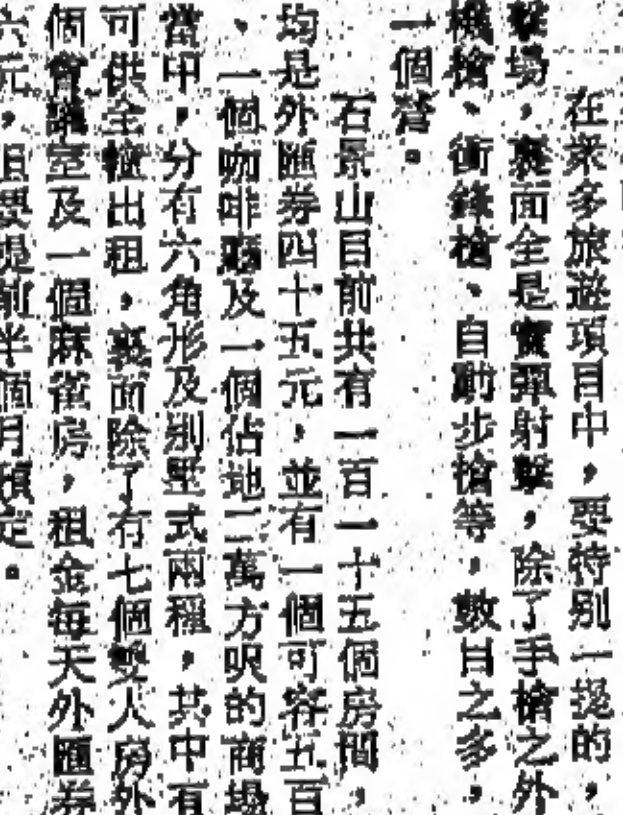 在衆多旅遊項目中，要特別一提的，
擊場，裏面全是實彈射擊，除了手槍之外
機槍、衝鋒槍、自動步槍等，數目之多，
一個營。
石景山目前共有一百一十五個房間，
均是外匯券四十五元，並有一個可容五百
、一個咖啡廳及一個佔地二萬方呎的商場
當中，分有六角形及別墅式兩種，其中有
可供全幢出租，裏面除了有七個雙人房外
個會議室及一個麻雀房，租金每天外匯券
六元，但要提前半個月預定。